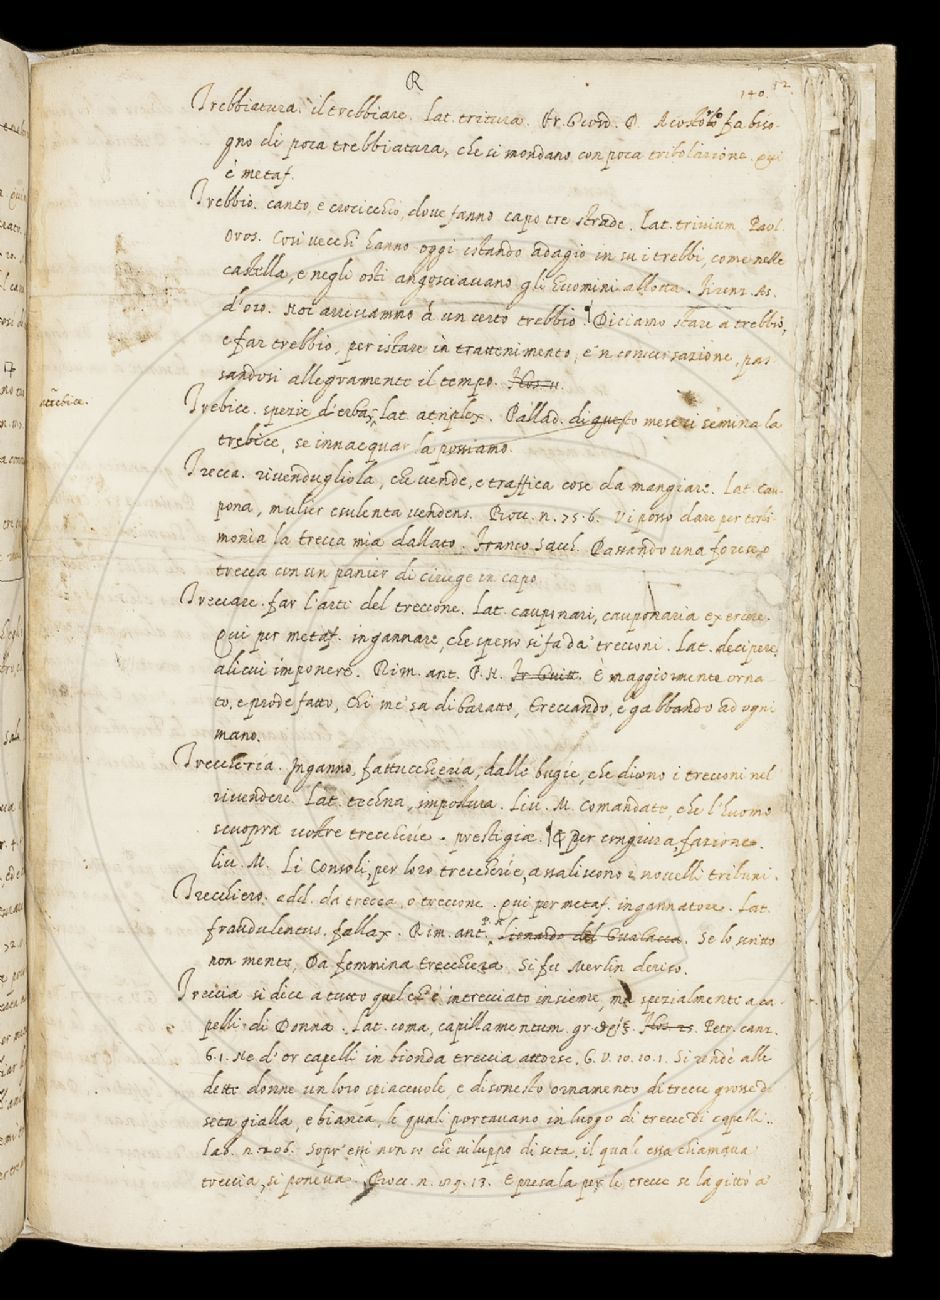 R
140. 52
Trebbiatura. il trebbiare. Lat. tritura. Fr. Giord. P. fa biso-
gno di poca trebbiatura, che si mondano con poca tribolazione. qui
è metaf.
Trebbio. canto, e crocicchio, dove fanno capo tre strade. Lat. trivium. Paol.
Oros. Così vecchi hanno oggi istando adagio in su i trebbi, come nelle
castella, e negli osti angosciavano gli huomini allotta. Firenz. As.
d'oro. Noi arrivammo à un certo trebbio. Diciamo stare a trebbio,
e far trebbio, per istare in trattenimento, e 'n conversazione, pas-
sandosi allegramente il tempo.
atrebice.
Trebice. spezie d'erba, Lat. atriplex. Pallad. di questo mese si semina la
trebice, se innacquar la possiamo.
Trecca. rivendugliola, che vende, e traffica cose da mangiare. Lat. cau-
pona, mulier esulenta vendens. Bocc. n. 75. 6. Vi posso dare per testi-
monia la trecca mia dallato. Franco Sacch. Passando una forese, o
trecca con un panier di ciriege in capo.
Treccare. far l'arte del treccone. Lat. cauponari, cauponaria exercere.
Qui per metaf. ingannare, che spesso si fa da' trecconi. Lat. decipere,
alicui imponere. Rim. ant. P. N. Fr. Guitt. E maggiormente orna-
to, e prode fatto, Chi me' sa di baratto, Treccando, e gabbando ad ogni
mano.
Treccheria. Inganno, fattuccheria, dalle bugie, che dicono i trecconi nel
rivendere. Lat. techna, impostura. Liv. M. Comandate, che l'huomo
scuopra vostre treccherie. prestigiæ. & per congiura, fazione.
liv. M. Li Consoli, per loro treccherie, assaliscono i novelli tribuni.
Trecchiero. add. da trecca, o treccone. qui per metaf. ingannatore. Lat.
fraudulentus, fallax. Rim. ant. P. N. Leonardo del Gualacca. Se lo scritto
non mente, Da femmina trecchiera, Si fu Merlin deriso.
Treccia si dice a tutto quel ch'è intrecciato insieme, ma spezialmente a ca-
pelli di Donna. Lat. coma, capillamentum. gr. Petr. canz.
6. 1. Ne d'or capelli in bionda treccia attorse. G. V. 10. 10. 1. Si rendè alle
dette donne un loro spiacevole e disonesto ornamento di trecce grosse di
seta gialla e bianca, le quali portavano in luogo di trecce di capelli.
Lab. n. 206. Sopr'essi non so che viluppo di seta, il quale essa chiamava
treccia, si poneva. Bocc. n. 19. 13. E presala per le trecce se la gittò a'